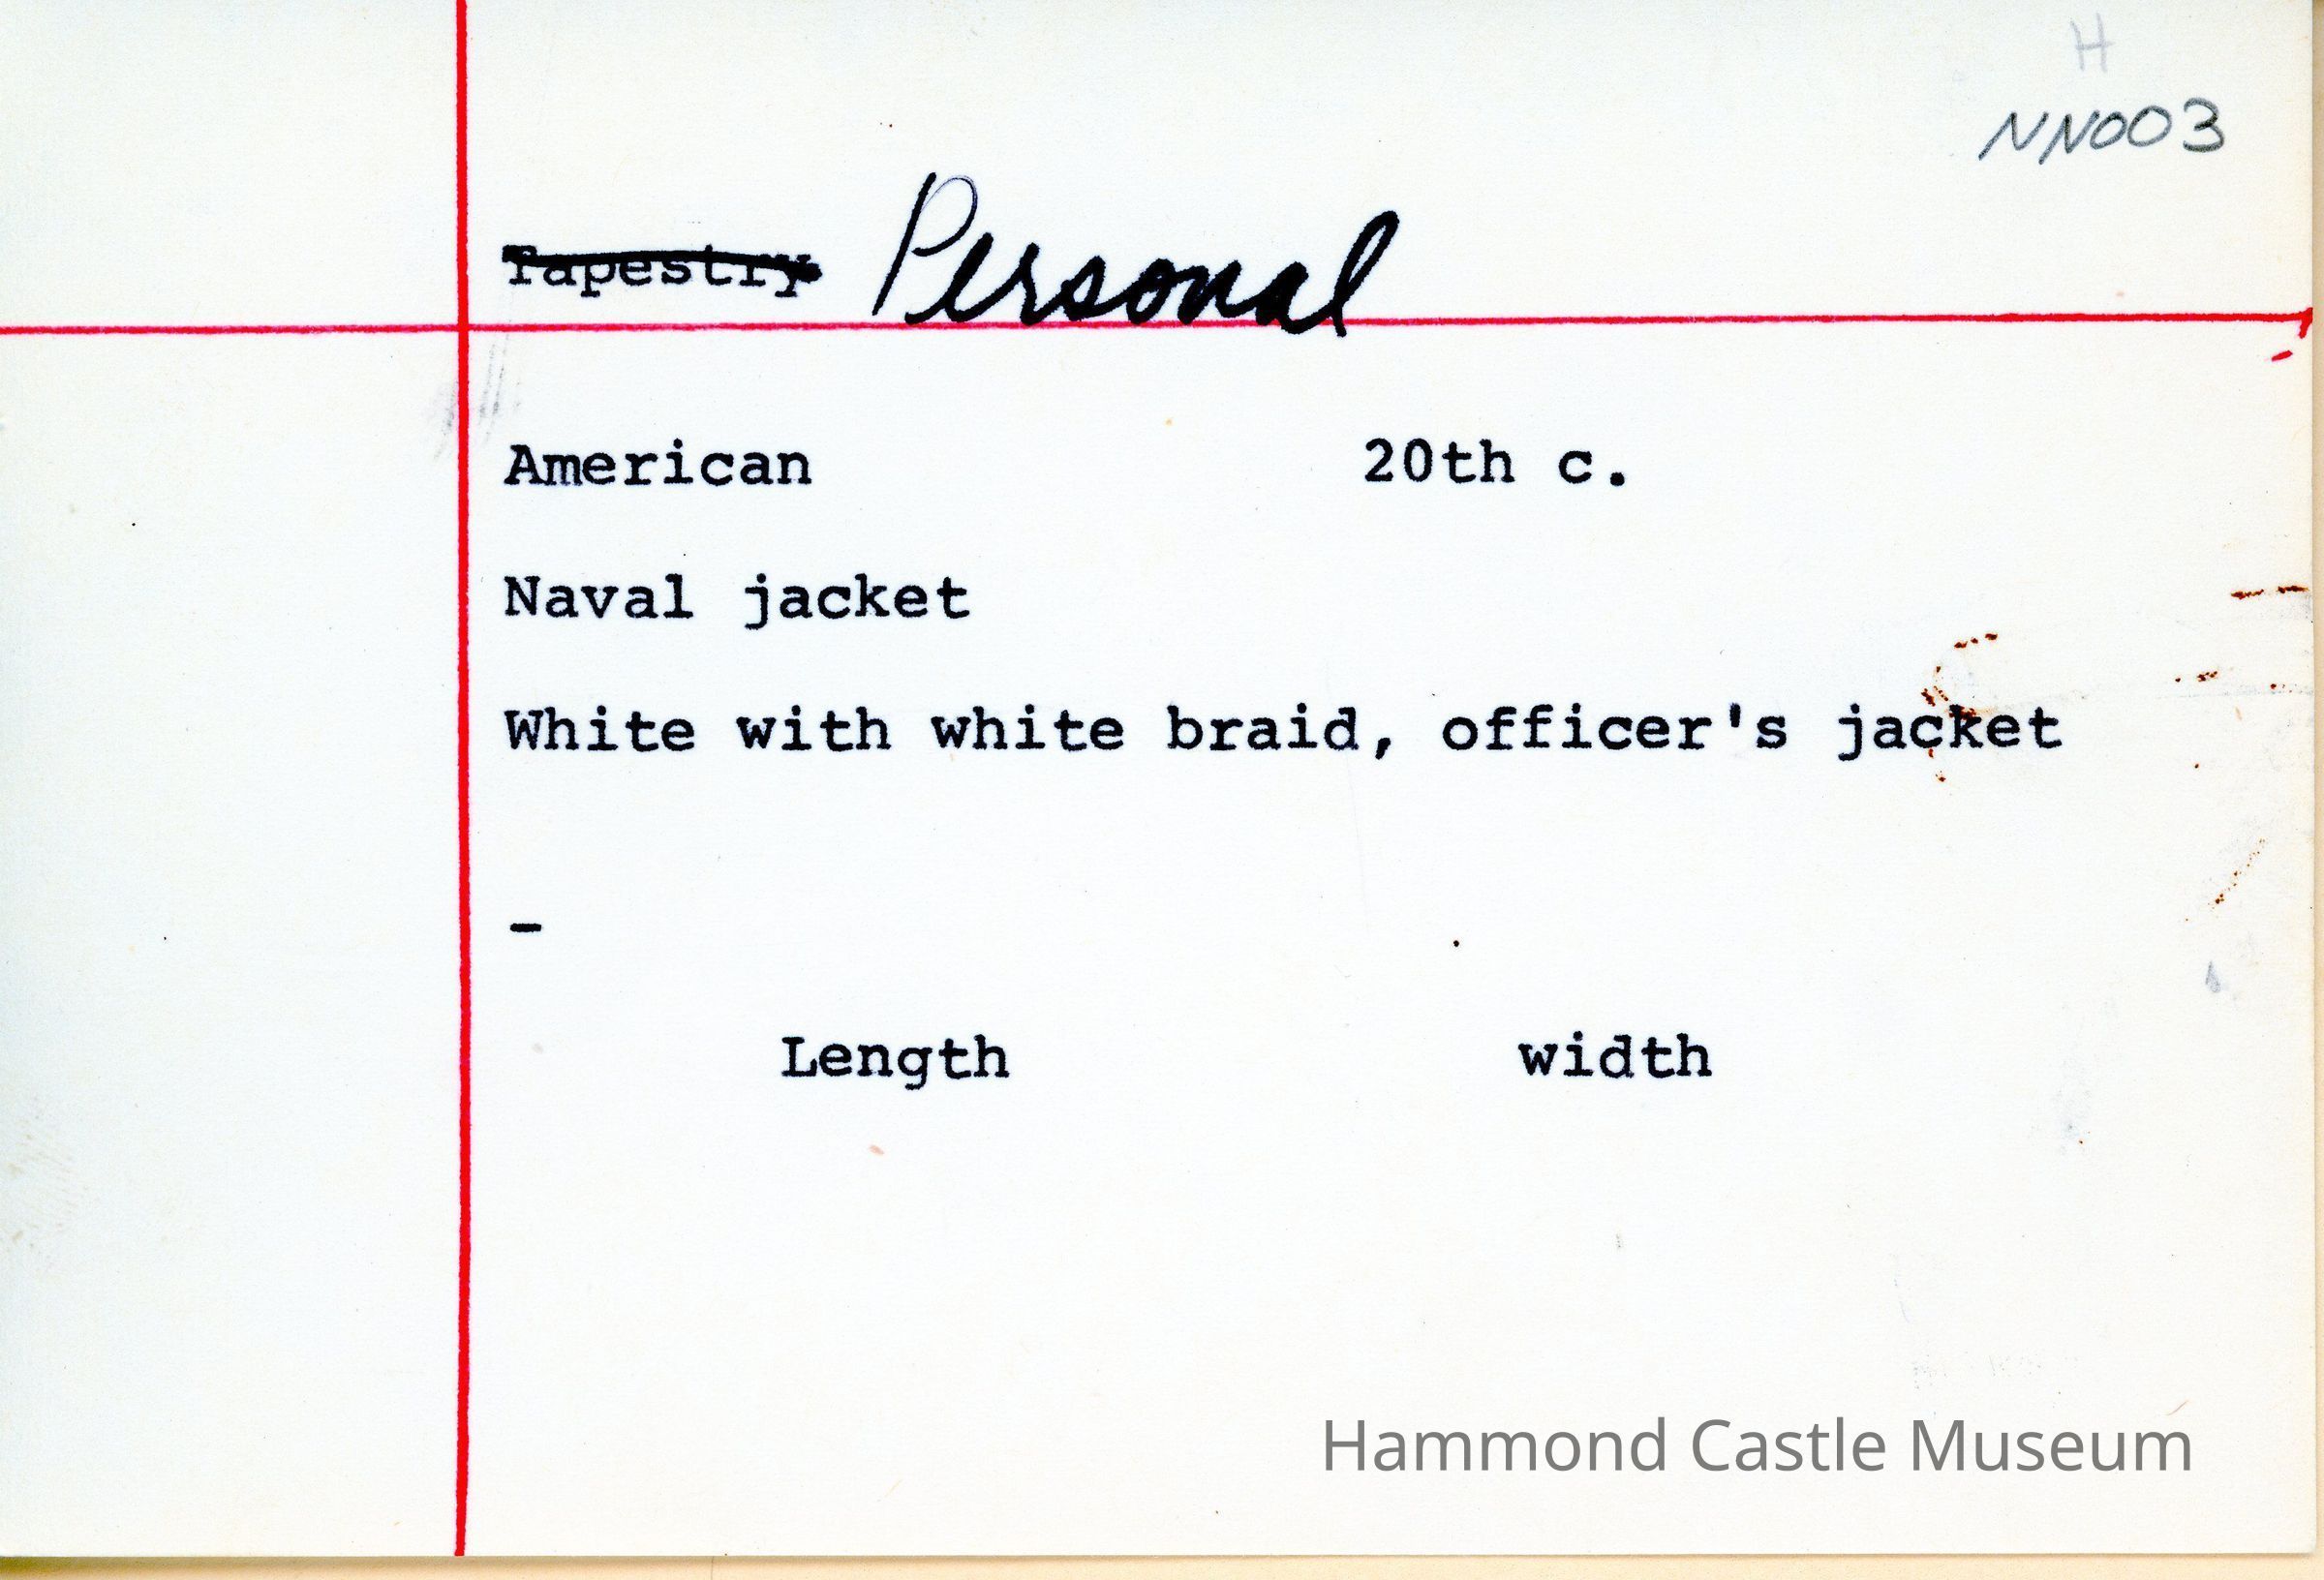 H
NN003
Tapestry Personal
American 20th c.
Naval jacket
White with white braid, officer's jacket
-
Length width
Hammond Castle Museum